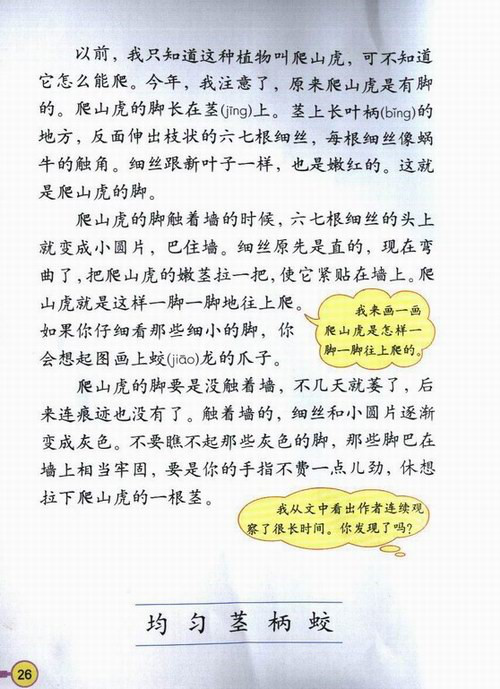 以前，我只知道这种植物叫爬山虎，可不知道
它怎么能爬。今年，我注意了，原来爬山虎是有脚
的。爬山虎的脚长在茎(jīng)上。茎上长叶柄(bǐng)的
地方，反面伸出枝状的六七根细丝，每根细丝像蜗
牛的触角。细丝跟新叶子一样，也是嫩红的。这就
是爬山虎的脚。
爬山虎的脚触着墙的时候，六七根细丝的头上
就变成小圆片，巴住墙。细丝原先是直的，现在弯
曲了，把爬山虎的嫩茎拉一把，使它紧贴在墙上。爬
山虎就是这样一脚一脚地往上爬。
如果你仔细看那些细小的脚，你
会想起图画上蛟(jiāo)龙的爪子。
我来画一画
爬山虎是怎样一
脚一脚往上爬的。
爬山虎的脚要是没触着墙，不几天就萎了，后
来连痕迹也没有了。触着墙的，细丝和小圆片逐渐
变成灰色。不要瞧不起那些灰色的脚，那些脚巴在
墙上相当牢固，要是你的手指不费一点儿劲，休想
拉下爬山虎的一根茎。
我从文中看出作者连续观
察了很长时间。你发现了吗？
均匀茎柄蛟
26